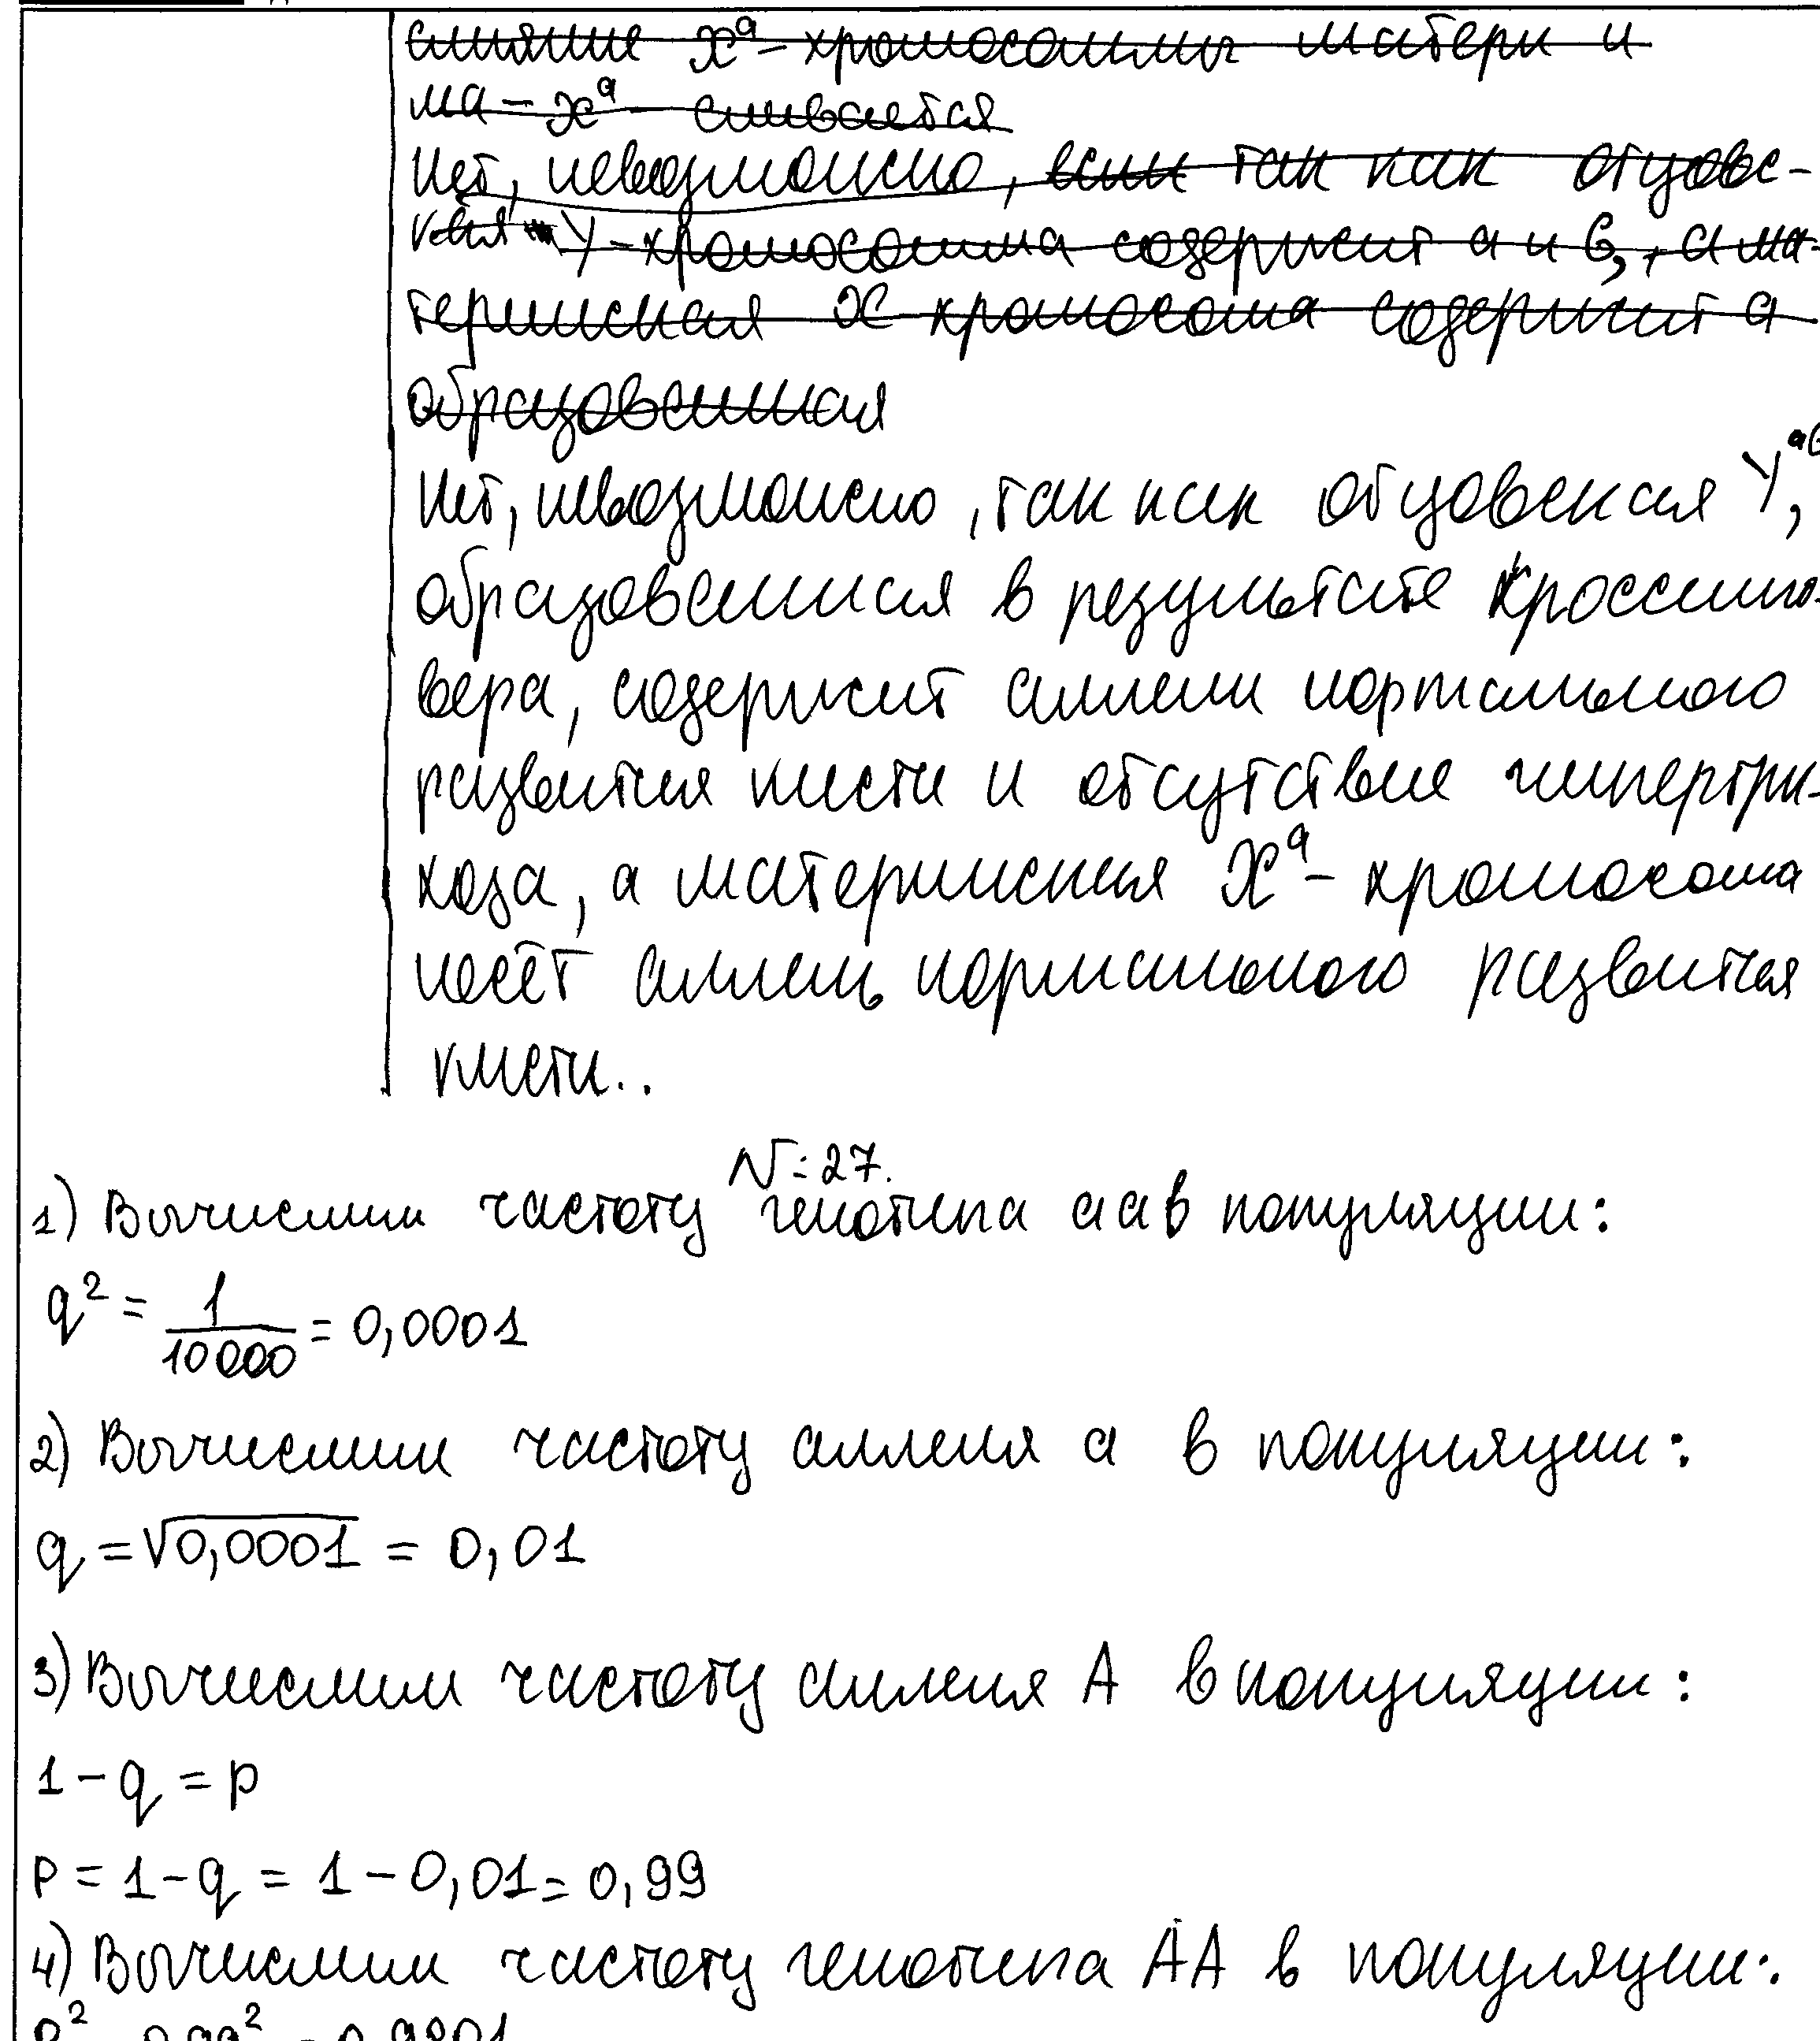 слияние x^a-хромосомы матери и
ма-x^a сливается
Нет, невозможно, если так как отцовс-
кая Y-хромосома содержит а и в, а ма-
теринская X хромосома содержит а
образованная
Нет, невозможно, так как отцовская Y^ав,
образованная в результате кроссинго-
вера, содержит аллели нормального
развития кисти и отсутствие гипертри-
хоза, а материнская X^а-хромосома
несёт аллель нормального развития
кисти..
N=27.
1) Вычислим частоту генотипа аа в популяции:
q² = 1/10000 = 0,0001
2) Вычислим частоту аллеля а в популяции:
q = √0,0001 = 0,01
3) Вычислим частоту аллеля А в популяции:
1-q = p
p = 1-q = 1-0,01 = 0,99
4) Вычислим частоту генотипа АА в популяции:
p² = 0,99² = 0,9801